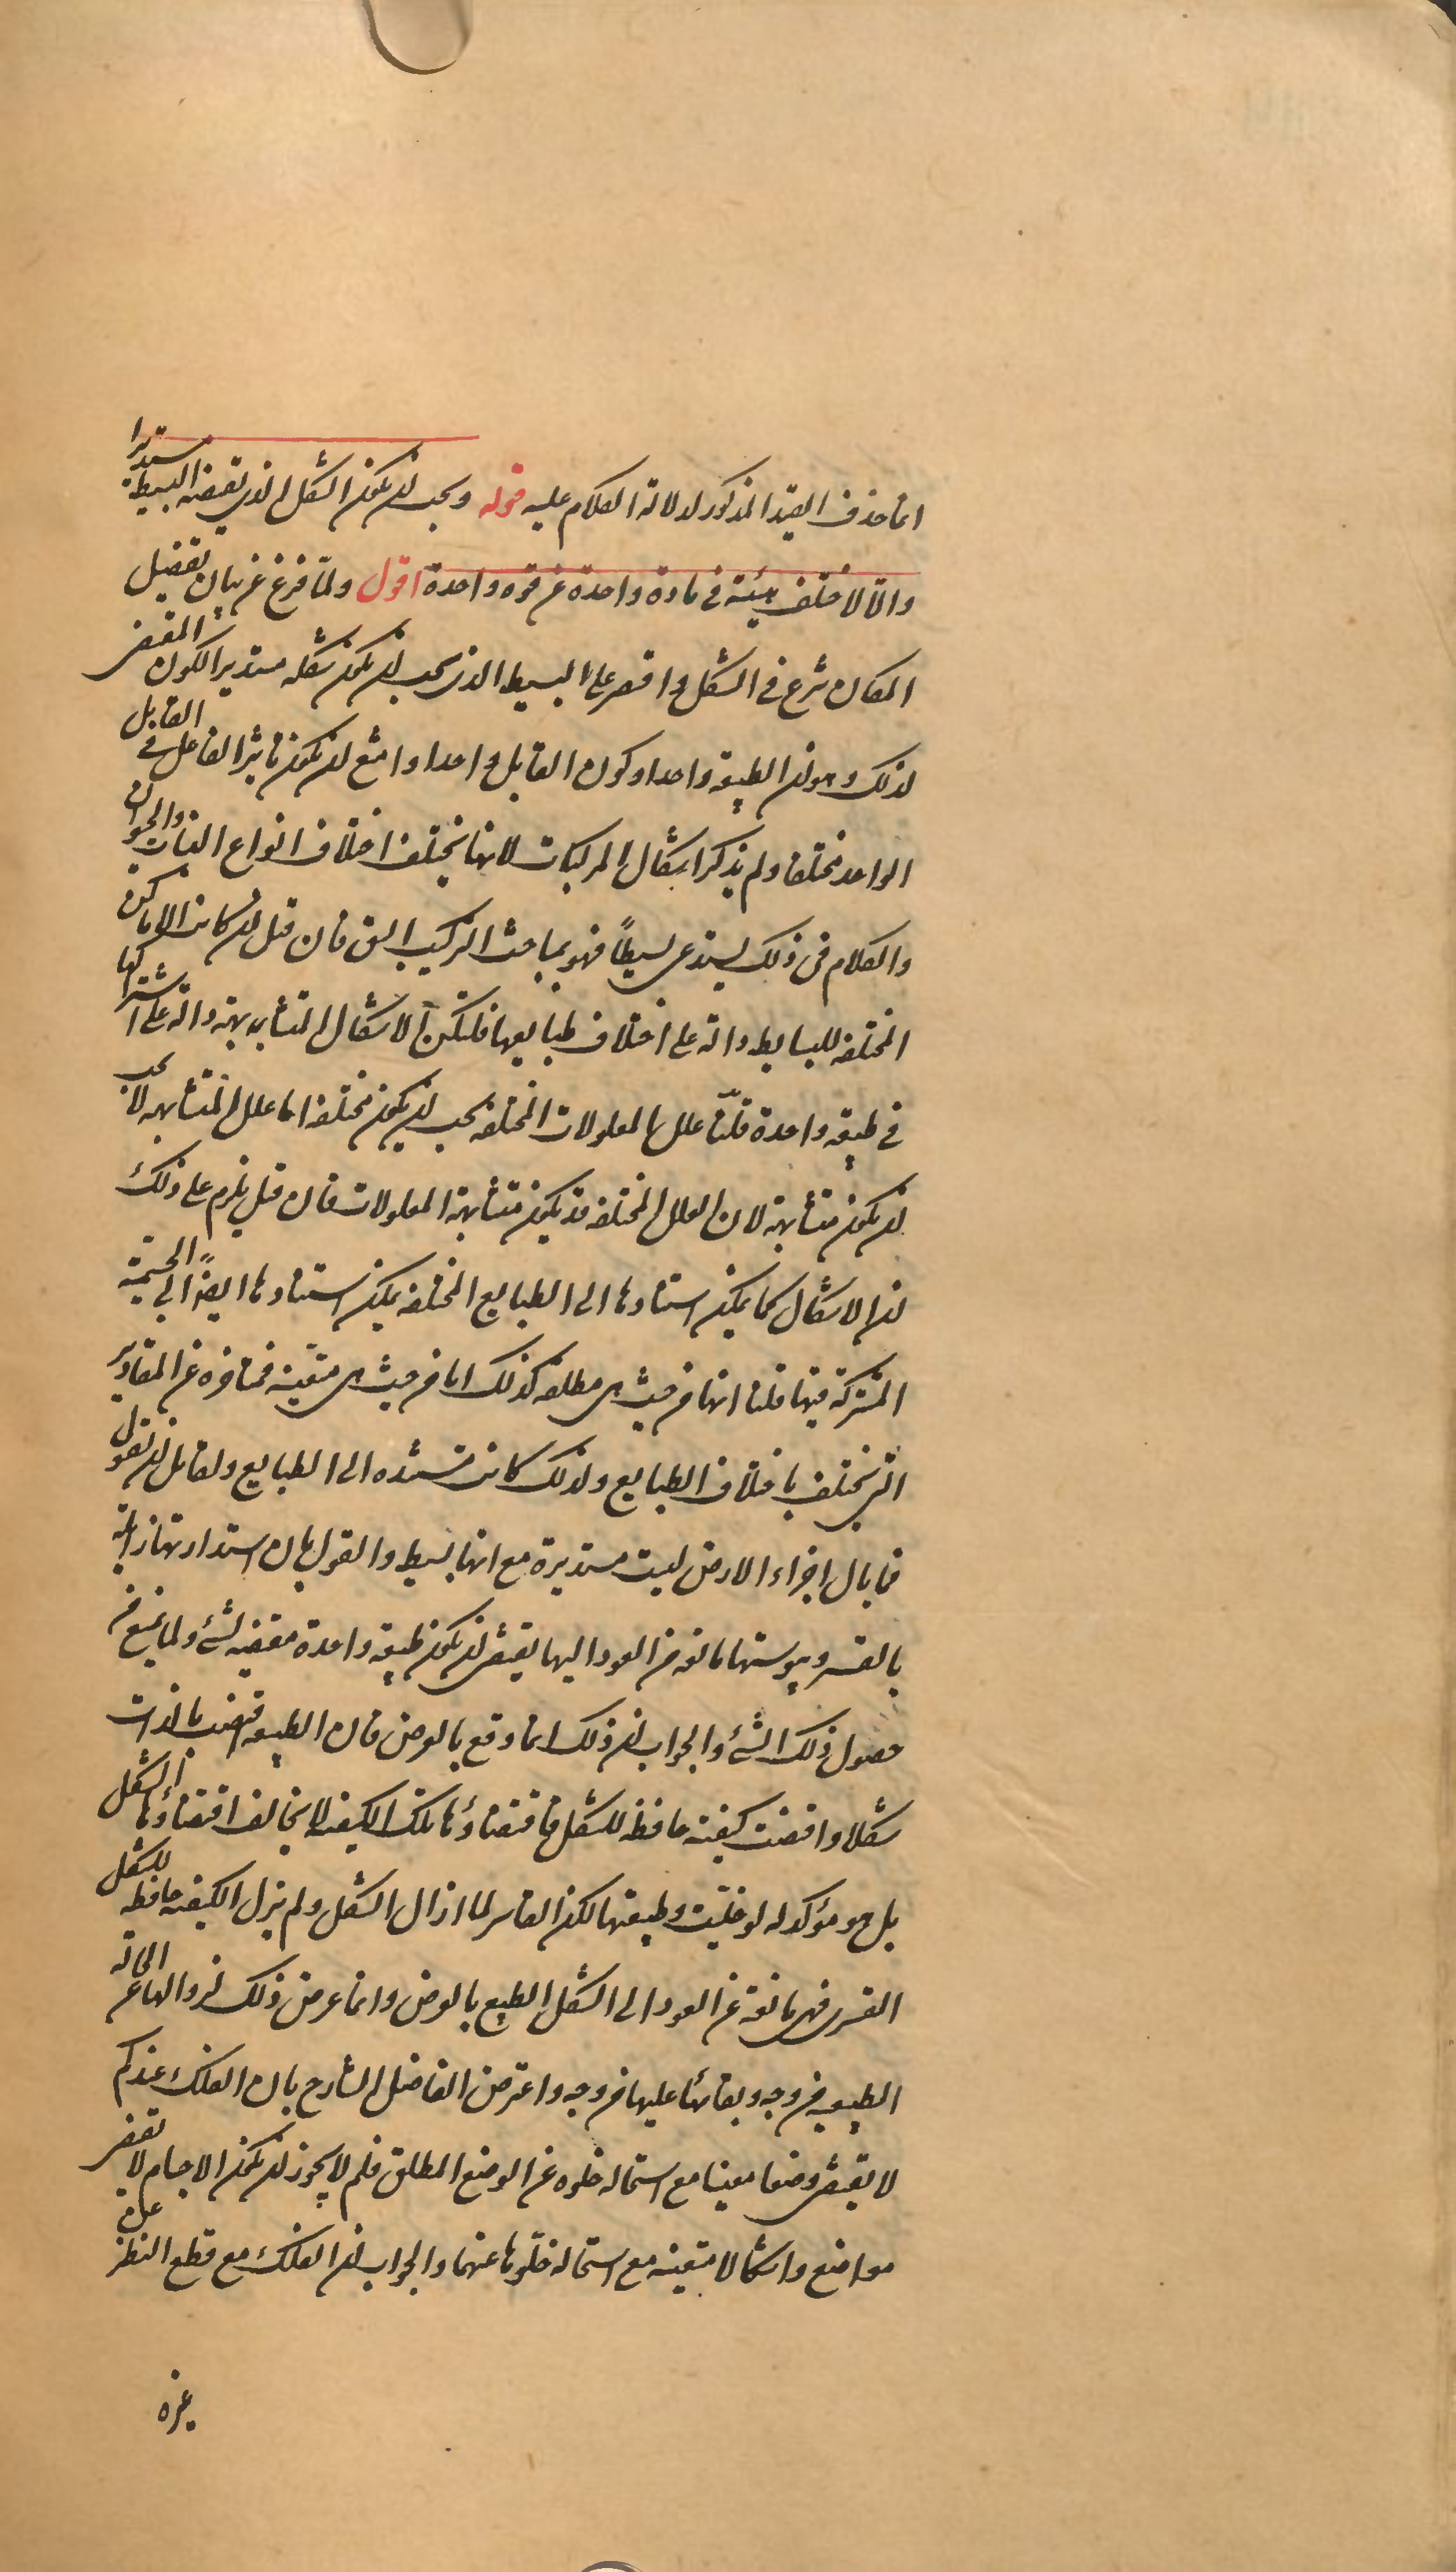 انما حذف القيد المذكور لدلالة الكلام عليه قوله ويجب ان يكون الشكل الذي يقتضيه البسيط مستديرا
والا لاختلف هيئته في مادة واحدة عن قوة واحدة اقول ولما فرغ عن بيان تفصيل
المكان شرع في الشكل واقتصر على البسيط الذي يجب ان يكون شكله مستديرا لكون المقتضي
لذلك وهو ان الطبيعة واحدا وكون القابل واحدا وامتنع ان يكون تاثير الفاعل في القابل
الواحد مختلفا ولم يذكر اشكال المركبات لانها يختلف اختلاف انواع النبات والحيوان
والكلام في ذلك يستدعى بسيطاً فهو بمباحث التركيب اليق فان قيل ان كانت الاماكن
المختلفه للبسايط دالة على اختلاف طبايعها فلتكن الاشكال المتشابهة دالة على اشتراكها
في طبيعة واحدة قلنا علل المعلولات المختلفه يجب ان يكون مختلفه اما علل المتشابهه لا يجب
ان يكون متشابهة لان العلل المختلفه قد يكون متشابهة المعلولات فان قيل يلزم على ذلك
ان الاشكال كما يمكن استنادها الى الطبايع المختلفه يمكن استنادها ايضاً الى الجسمية
المشتركة فيها قلنا انها من حيث هي مطلقه كذلك اما من حيث هي متعينه فمتاخره عن المقادير
التي تختلف باختلاف الطبايع ولذلك كانت مستنده الى الطبايع ولقايل ان يقول
فما بال اجزاء الارض ليست مستديرة مع انها بسيط والقول بان استدارتها زايلة
بالقسر ويبوستها مانعه من العود اليها يقتضى ان يكون طبيعة واحدة مقتضيه لشئ ولما يمنع من
حصول ذلك الشئ والجواب ان ذلك انما وقع بالعرض فان الطبيعه اقتضت بالذات
شكلا واقتضت كيفيته حافظه للشكل فاقتضاؤها تلك الكيفيه لا يخالف اقتضاؤها الشكل
بل هو مؤكد له لو خليت وطبيعتها لكن القاسر لما ازال الشكل ولم يزل الكيفيه حافظه للشكل
القسرى فهى مانعة عن العود الى الشكل الطبيع بالعرض وانما عرض ذلك لزوالها عن الحالة
الطبيعيه من وجه وبقائها عليها من وجه واعترض الفاضل الشارح بان الفلك عندكم
لا يقتضى وضعا معينا مع استحاله خلوه عن الوضع المطلق فلم لا يجوز ان يكون الاجسام لا تقتضى
مواضع واشكالا متعينه مع استحاله خلوها عنهما والجواب ان الفلك مع قطع النظر عن
غيره